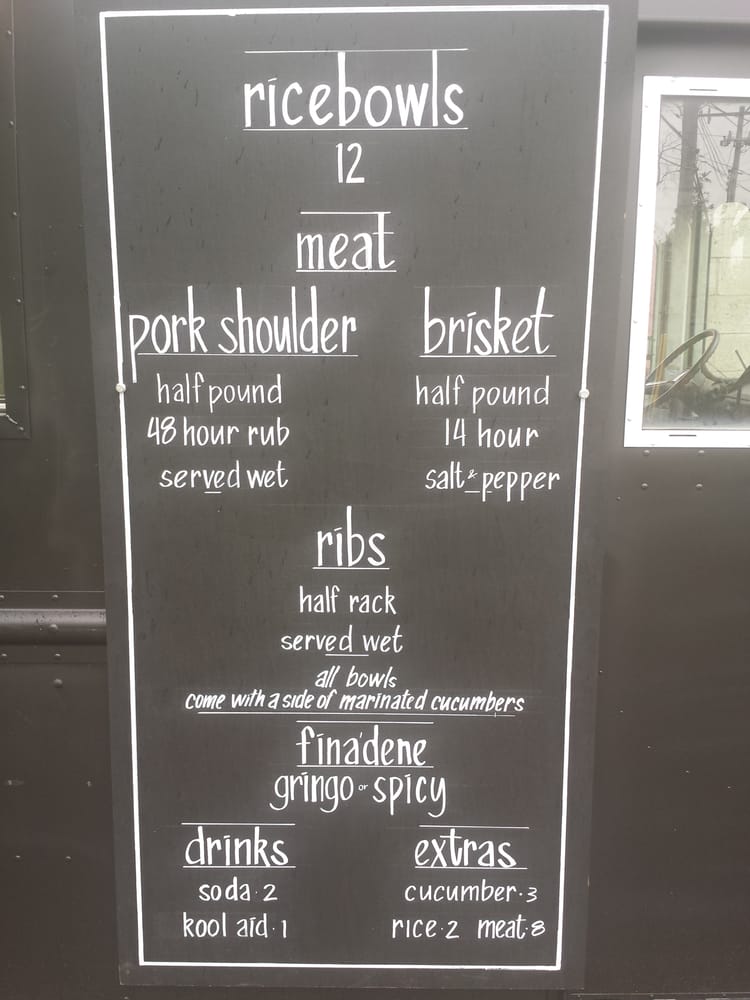 ricebowls
12
meat
pork shoulder
half pound
48 hour rub
served wet
brisket
half pound
14 hour
salt & pepper
ribs
half rack
served wet
all bowls
come with a side of marinated cucumbers
fina'dene
gringo or spicy
drinks
soda · 2
kool aid · 1
extras
cucumber · 3
rice · 2 meat · 8